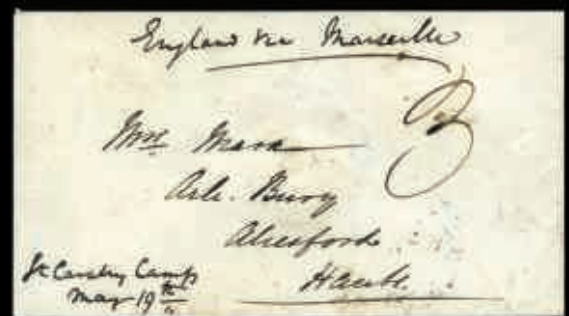 England via Marseille
3
Mrs Marx
Arle. Bury
Alresford
Hants.
Lt Cavalry Camp
May 19th